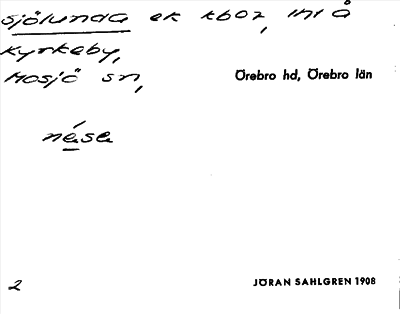 sjölunda ek kboz, inl å
Kyrkeby,
Mosjö sn,
Örebro hd, Örebro län
nésa
2
JÖRAN SAHLGREN 1908